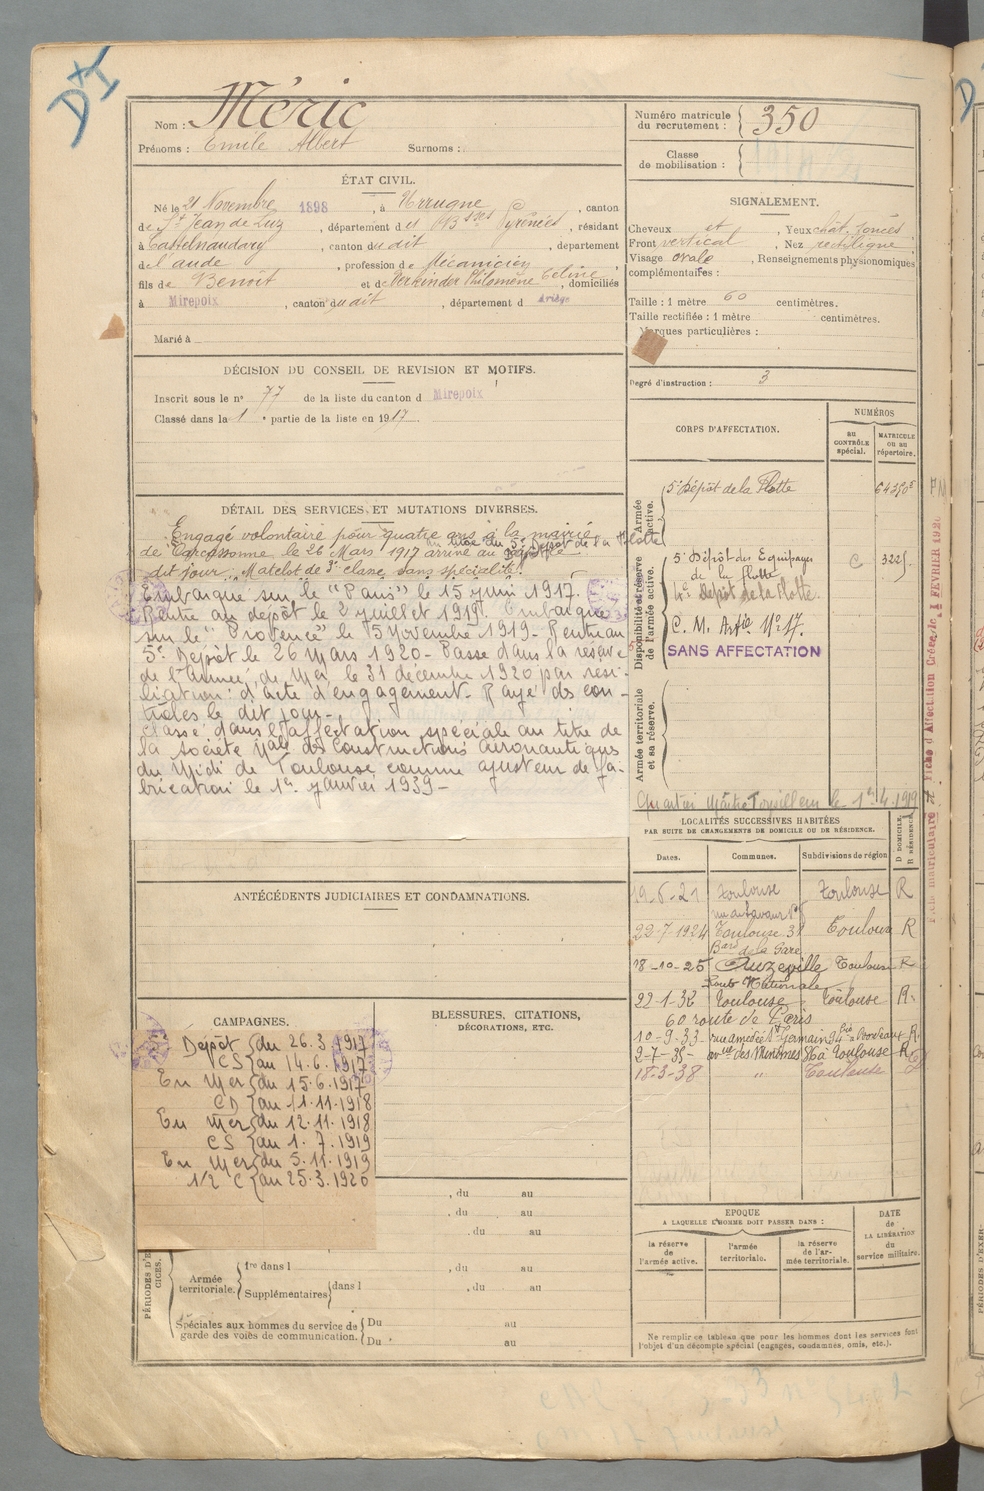 D+I
Nom : Méric
Prénoms : Emile Albert Surnoms :
Numéro matricule du recrutement : 350
Classe de mobilisation :
ÉTAT CIVIL.
Né le 21 Novembre 1898, à Urrugne, canton
de St Jean de Luz, département d es Bses Pyrénées, résidant
à Castelnaudary, canton dudit, département
de l'aude, profession de Mécanicien
fils de Benoît et de Philomène Céline, domiciliés
à Mirepoix, canton dudit, département d Ariège
Marié à
SIGNALEMENT.
Cheveux et, Yeux chât. foncés
Front vertical, Nez rectiligne
Visage ovale, Renseignements physionomiques
complémentaires :
Taille : 1 mètre 60 centimètres.
Taille rectifiée : 1 mètre centimètres.
Marques particulières :
Degré d'instruction : 3
DÉCISION DU CONSEIL DE REVISION ET MOTIFS.
Inscrit sous le n° 77 de la liste du canton d Mirepoix
Classé dans la 1e partie de la liste en 1917.
DÉTAIL DES SERVICES ET MUTATIONS DIVERSES.
Engagé volontaire pour quatre ans à la mairie
au titre du 5e Dépôt de la Flotte
de Carcassonne le 26 Mars 1917 arrivé au
dit jour, Matelot de 3e classe sans spécialité.
Embarque sur le "Paris" le 15 juin 1917.
Rentre au dépôt le 2 juillet 1919. Embarque
sur le "Provence" le 5 Novembre 1919 - Rentre au
5e Dépôt le 26 Mars 1920 - Passe dans la réserve
de l'armée de Mer le 31 décembre 1920 par rési-
liation d'acte d'engagement. Rayé des con-
trôles le dit jour.
Classé dans l'affectation spéciale au titre de
la société Nale de Constructions aéronautiques
du Midi de Toulouse comme ajusteur de fa-
brication le 1er janvier 1939 -
CORPS D'AFFECTATION.
NUMÉROS
au CONTRÔLE spécial.
MATRICULE ou au répertoire.
Armée active.
5e Dépôt de la Flotte
Disponibilité et réserve de l'armée active.
5e Dépôt des Equipages de la flotte C 3225
4e Dépôt de la Flotte
C. M. Artie N° 17.
SANS AFFECTATION
Armée territoriale et sa réserve.
Quartier Maître Torpilleur le 1er 4.1919
LOCALITÉS SUCCESSIVES HABITÉES
PAR SUITE DE CHANGEMENTS DE DOMICILE OU DE RÉSIDENCE.
Dates. Communes. Subdivisions de région D DOMICILE. R RÉSIDENCE.
19-6-21 Toulouse Toulouse R
22-7-1924 Toulouse 31 Toulouse R
Bard de la Gare
18-10-25 Auzeville Toulouse R
Route Nationale
22-1-32 Toulouse Toulouse R.
60 route de Paris
10-9-33 rue amédée St Germain 94 bis a Bordeaux R.
2-7-35 - avue des Minimes 86 à Toulouse R
18-3-38 " Toulouse
ANTÉCÉDENTS JUDICIAIRES ET CONDAMNATIONS.
CAMPAGNES.
Dépôt du 26.3.1917
CS au 14.6.1917
En Mer du 15.6.1917
CD au 11.11.1918
En Mer du 12.11.1918
CS au 1.7.1919
En Mer du 5.11.1919
1/2 C au 25.3.1920
BLESSURES, CITATIONS,
DÉCORATIONS, ETC.
, du au
, du au
, du au
PÉRIODES D'EXERCICES.
Armée territoriale.
1re dans l , du au
Supplémentaires dans l , du au
Spéciales aux hommes du service de garde des voies de communication.
Du au
Du au
EPOQUE
A LAQUELLE L'HOMME DOIT PASSER DANS :
la réserve de l'armée active.
l'armée territoriale.
la réserve de l'armée territoriale.
DATE de LA LIBÉRATION du service militaire.
Ne remplir ce tableau que pour les hommes dont les services font
l'objet d'un décompte spécial (engagés, condamnés, omis, etc.).